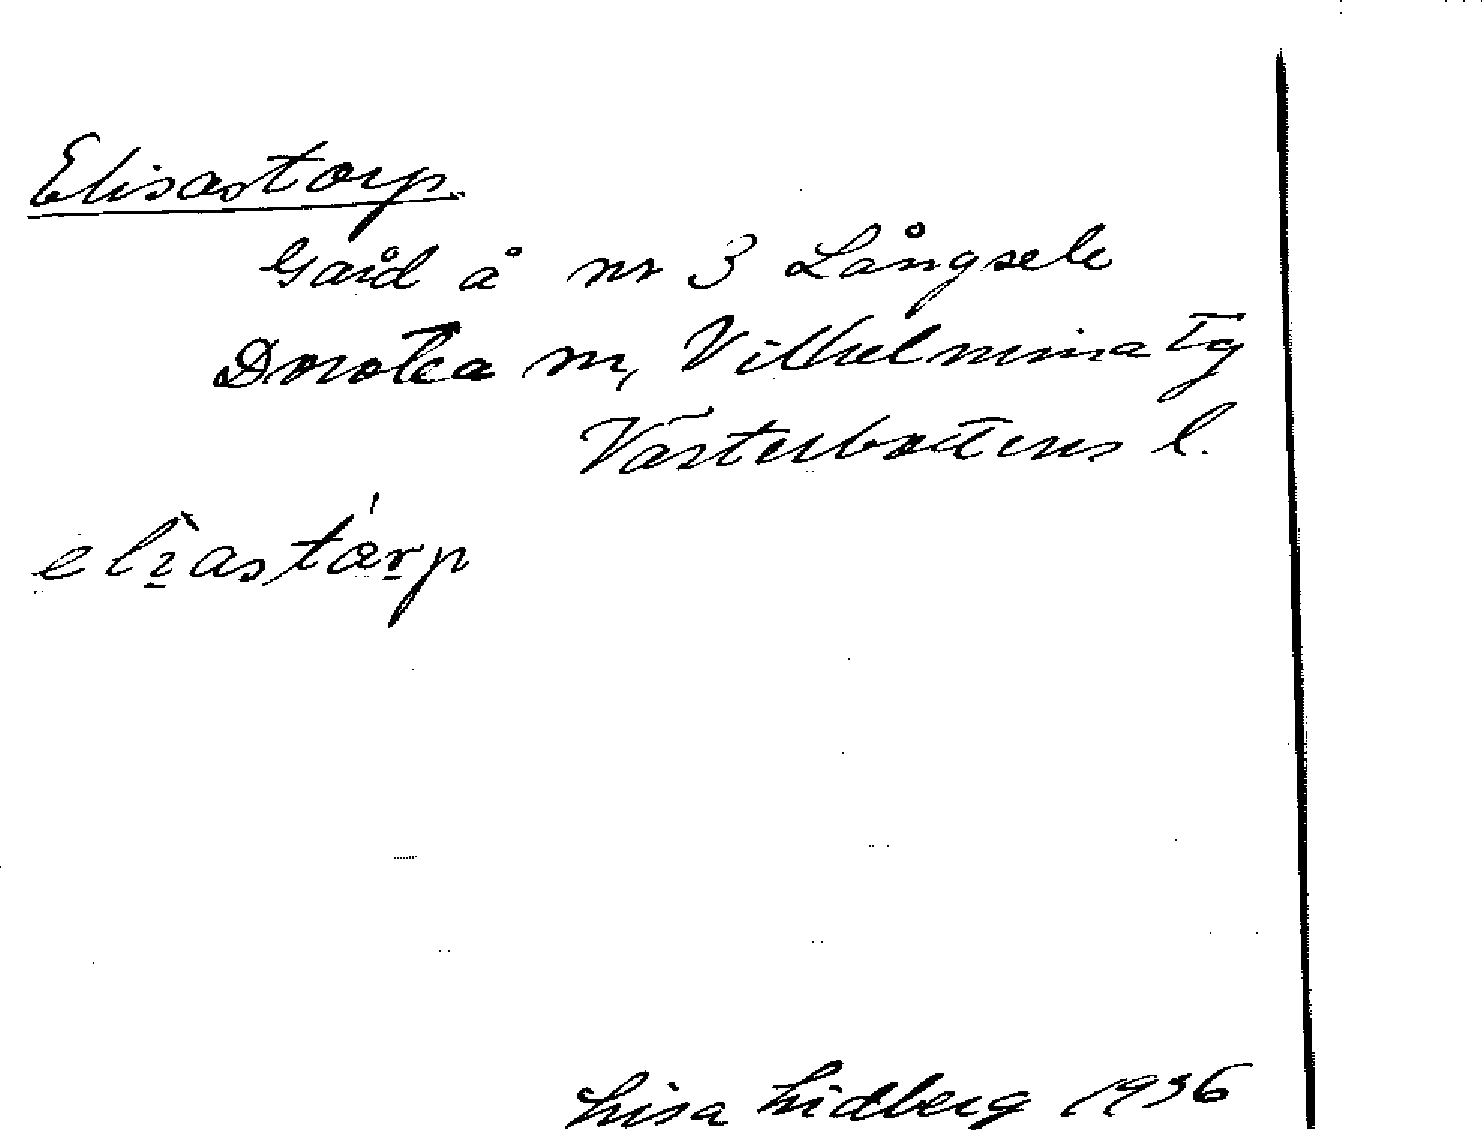 Elisastorp.
Gård å nr 3 Långsele
Dorotea sn, Vilhelmina tg
Västerbottens l.
elìastá̱rp
Lisa Lidberg 1936